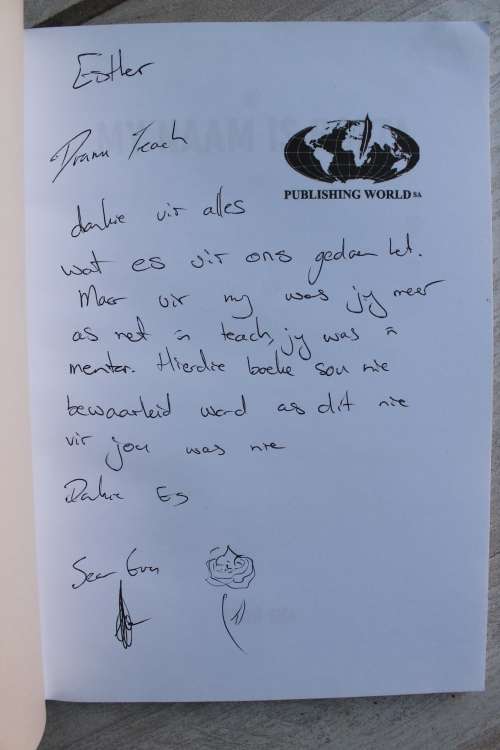 Esther
Drama Teach
PUBLISHING WORLD SA
dankie vir alles
wat es vir ons gedaan het.
Maar vir my was jy meer
as net 'n teach, jy was 'n
mentor. Hierdie boeke sou nie
bewaarheid word as dit nie
vir jou was nie
Dankie Es
Sean